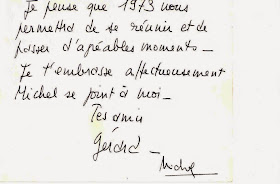 Je pense que 1973 nous
permettra de se réunir et de
passer d'agréables moments _
Je t'embrasse affectueusement
Michel se joint à moi _
Tes amis
Gérard _
Michel